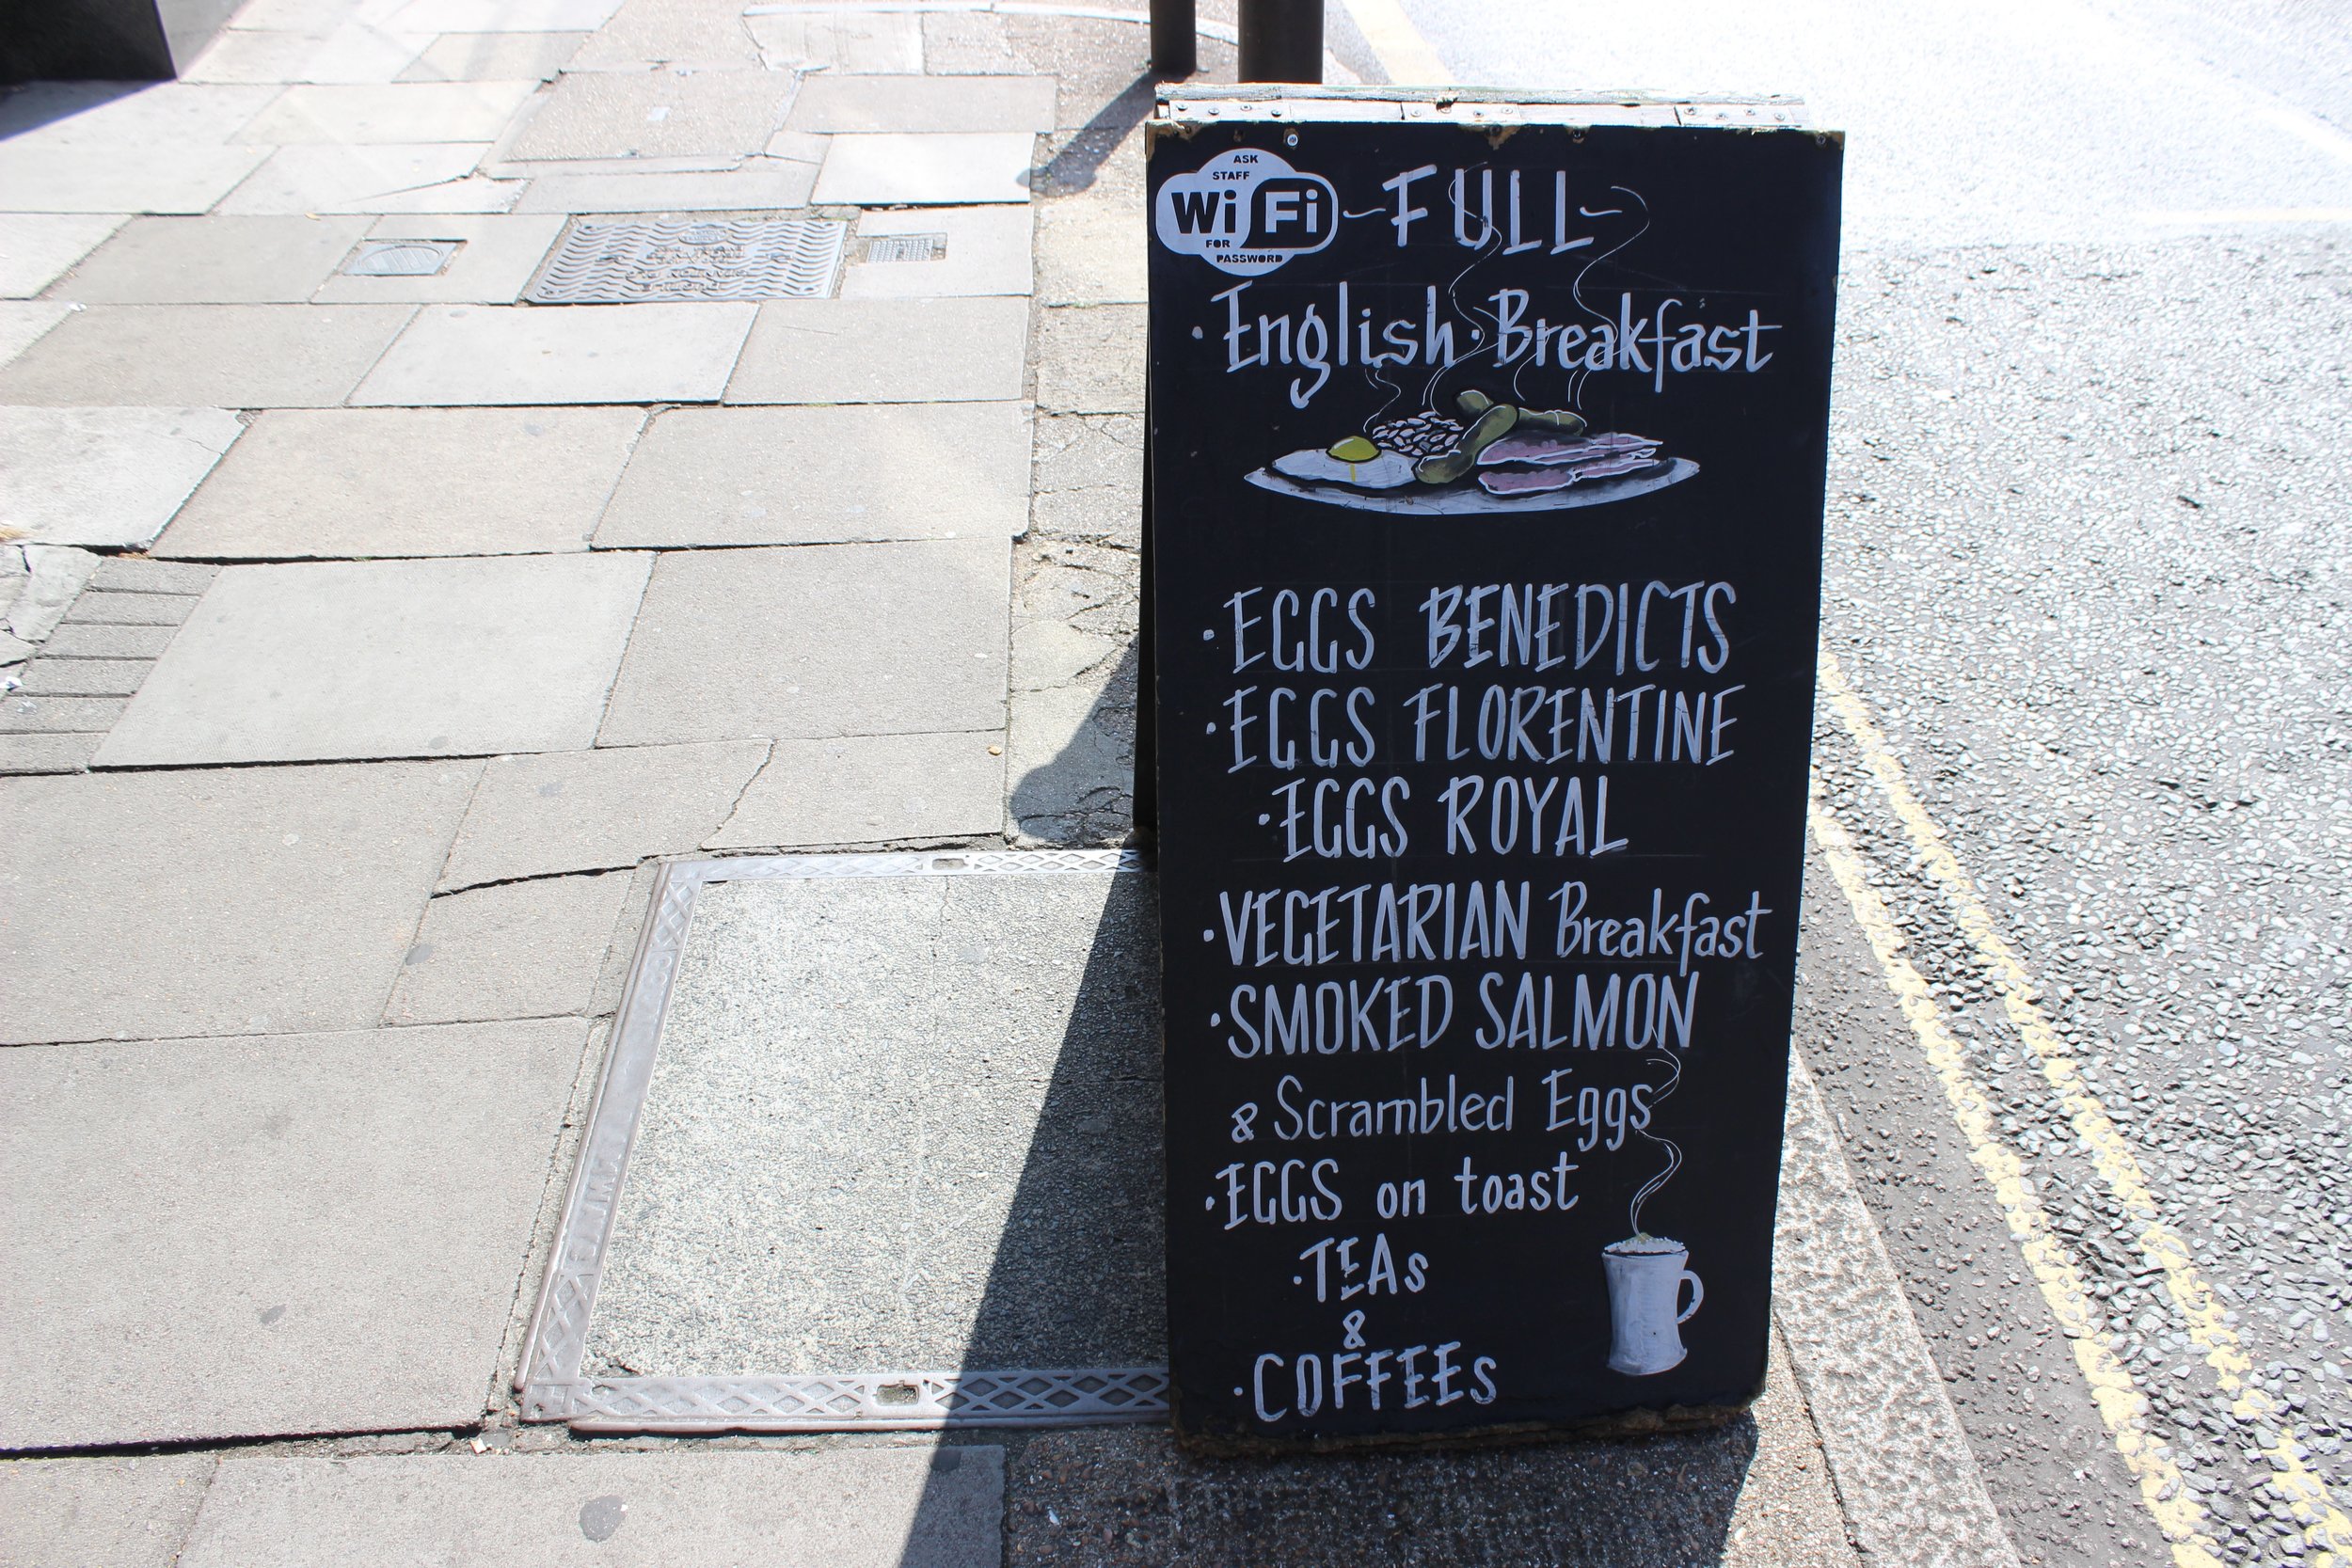 ASK
STAFF
WiFi
FOR
PASSWORD
~FULL~
·English·Breakfast
·EGGS BENEDICTS
·EGGS FLORENTINE
·EGGS ROYAL
·VEGETARIAN Breakfast
·SMOKED SALMON
& Scrambled Eggs
·EGGS on toast
·TEAs
&
·COFFEEs